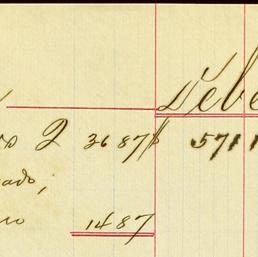 Debe
2 36 87 $ 571 1
ado,
14 87